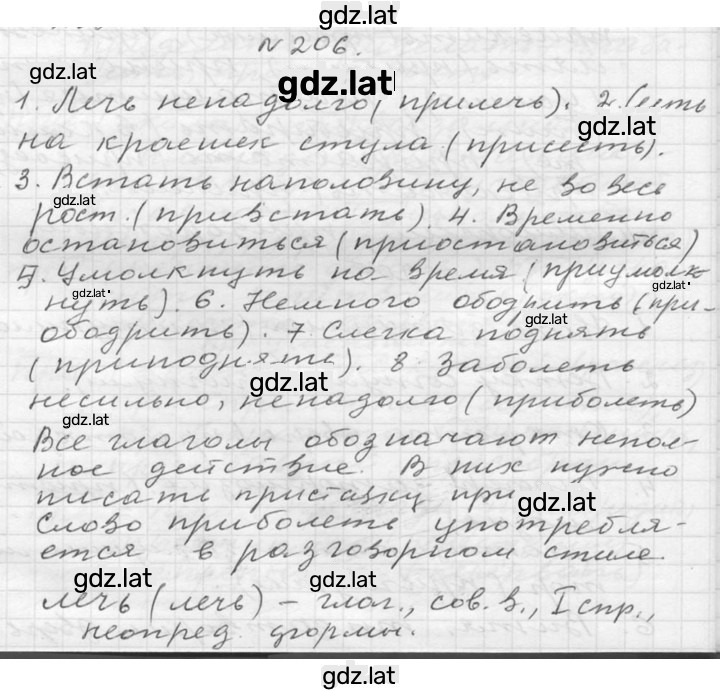 gdz.lat
№ 206.
gdz.lat
gdz.lat
1. Лечь ненадолго (прилечь). 2. Сесть
gdz.lat
на краешек стула (присесть).
3. Встать наполовину, не во весь
gdz.lat
рост. (привстать). 4. Временно
остановиться (приостановиться)
5. Умолкнуть на время (приумолк
gdz.lat
gdz.lat
нуть). 6. Немного ободрить (при-
gdz.lat
ободрить). 7. Слегка поднять
(приподнять). 8. Заболеть
gdz.lat
несильно, ненадолго (приболеть)
gdz.lat
Все глаголы обозначают непол-
ное действие. В них нужно
писать приставку при
gdz.lat
Слово приболеть употребля-
ется в разговорном стиле
gdz.lat
gdz.lat
лечь (лечь) – глаг., сов. в., I спр.,
неопред. формы.
gdz.lat